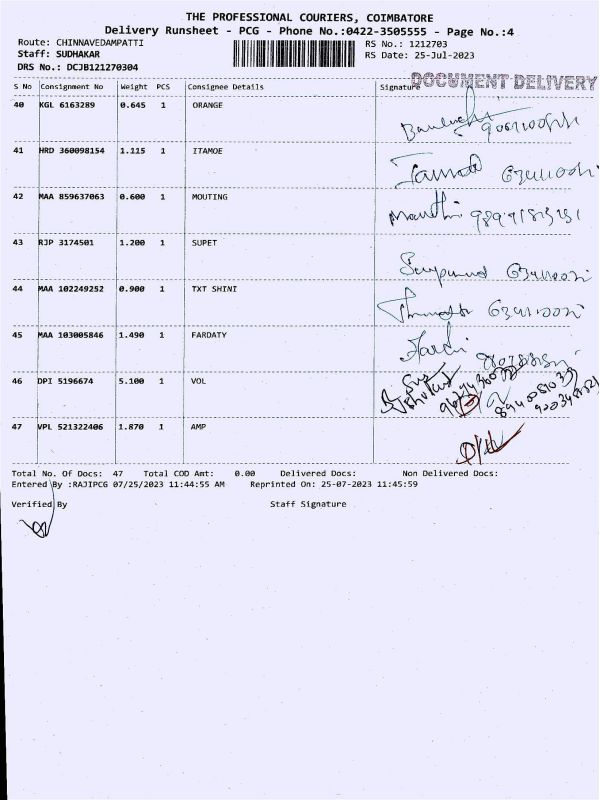 THE PROFESSIONAL COURIERS, COIMBATORE
Delivery Runsheet - PCG - Phone No.:0422-3505555 - Page No.:4
Route: CHINNAVEDAMPATTI RS No.: 1212703
Staff: SUDHAKAR RS Date: 25-Jul-2023
DRS No.: DCJB121270304
DOCUMENT DELIVERY
S No Consignment No Weight PCS Consignee Details Signature
40 KGL 6163289 0.645 1 ORANGE
41 HRD 360098154 1.115 1 ITAMOE
42 MAA 859637063 0.600 1 MOUTING
43 RJP 3174501 1.200 1 SUPET
44 MAA 102249252 0.900 1 TXT SHINI
45 MAA 103005846 1.490 1 FARDATY
46 DPI 5196674 5.100 1 VOL
47 VPL 521322406 1.870 1 AMP
Total No. Of Docs: 47 Total COD Amt: 0.00 Delivered Docs: Non Delivered Docs:
Entered By :RAJIPCG 07/25/2023 11:44:55 AM Reprinted On: 25-07-2023 11:45:59
Verified By Staff Signature